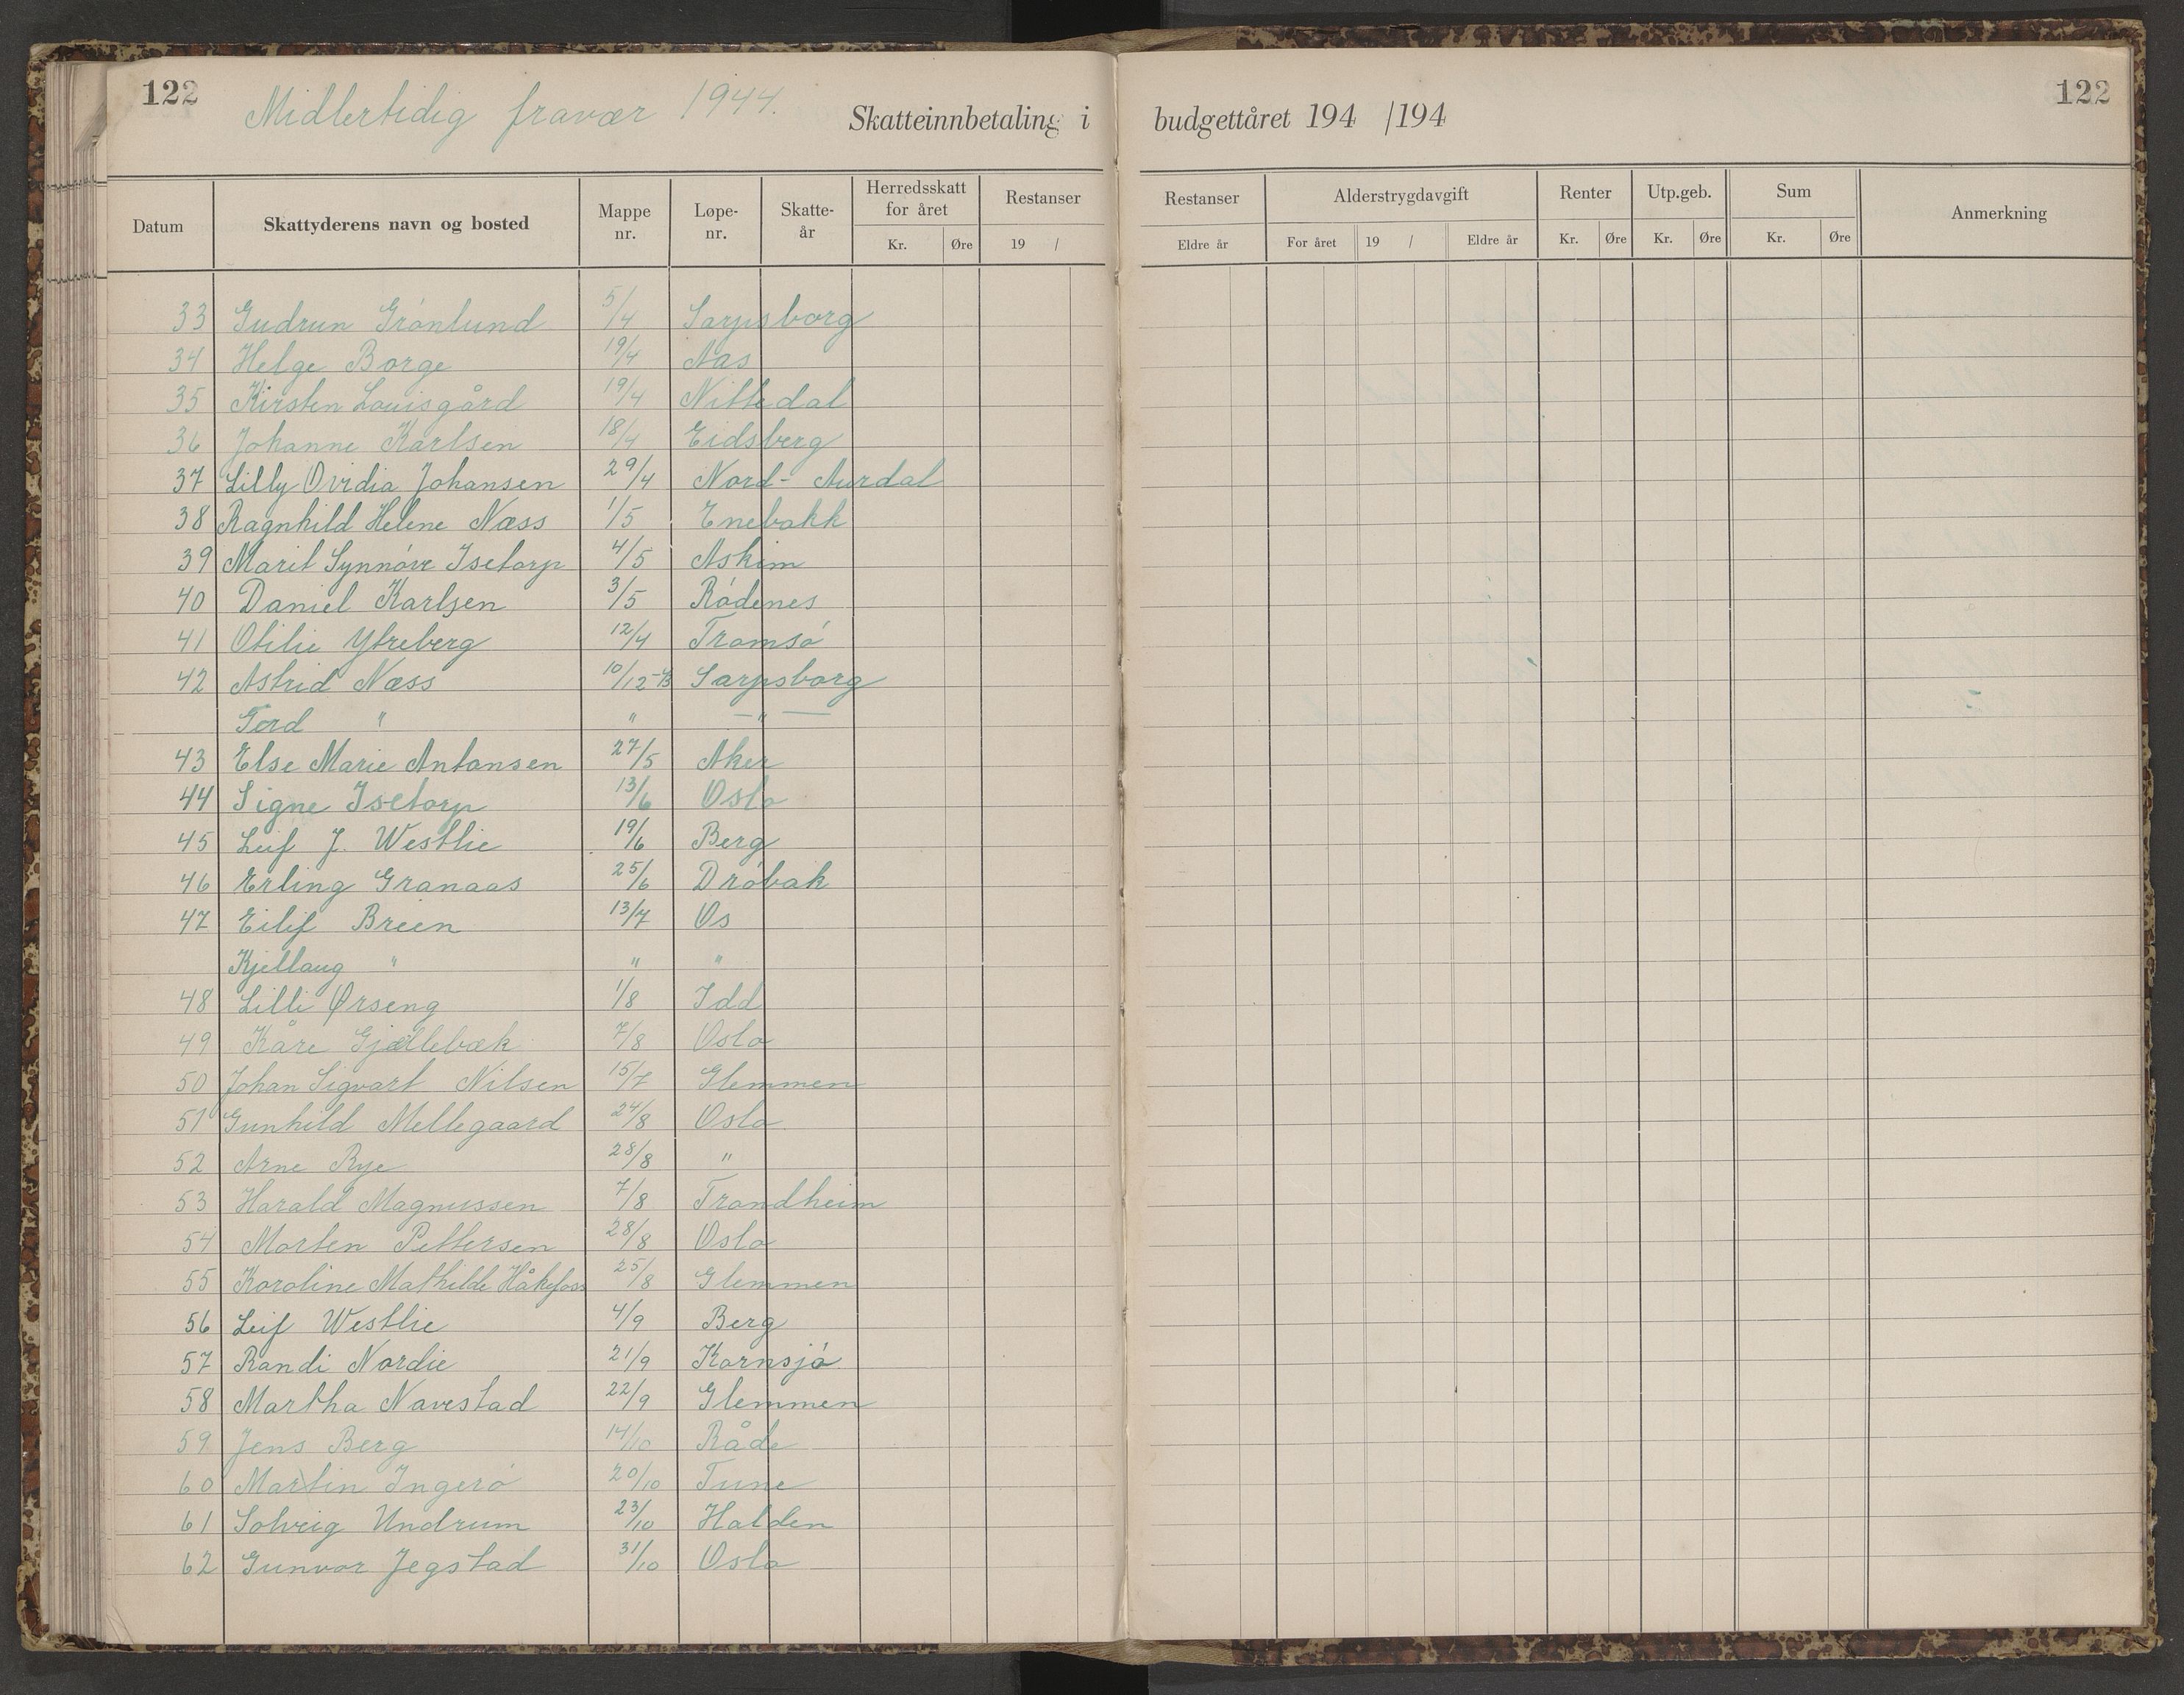 122
Midlertidig fravær 1944.
Skatteinnbetaling i budgettåret 194 /194
122
Datum Skattyderens navn og bosted Mappe nr. Løpe-nr. Skatte-år Herredsskatt for året Kr. Øre Restanser 19 / Restanser Eldre år Alderstrygdavgift For året 19 / Eldre år Renter Kr. Øre Utp.geb. Kr. Øre Sum Kr. Øre Anmerkning
33 Gudrun Grønlund 5/4 Sarpsborg
34 Helge Borge 19/4 Aas
35 Kirsten Louisgård 19/4 Nittedal
36 Johanne Karlsen 18/4 Eidsberg
37 Lilly Ovidia Johansen 29/4 Nord-Aurdal
38 Ragnhild Helene Næss 1/5 Enebakk
39 Marit Synnøve Isetorp 4/5 Askim
40 Daniel Karlsen 3/5 Rødenes
41 Otilie Ytreberg 12/4 Tromsø
42 Astrid Næss 10/12-43 Sarpsborg
Tord " " — " —
43 Else Marie Antonsen 27/5 Aker
44 Signe Isetorp 13/6 Oslo
45 Leif J. Westlie 19/6 Berg
46 Erling Granaas 25/6 Drøbak
47 Eilif Breen 13/7 Os
Kjellaug " " "
48 Lilli Ørseng 1/8 Idd
49 Kåre Gjellebæk 7/8 Oslo
50 Johan Sigvart Nilsen 15/7 Glemmen
51 Gunhild Mellegaard 24/8 Oslo
52 Arne Rye 28/8 "
53 Harald Magnussen 7/8 Trondheim
54 Morten Pettersen 28/8 Oslo
55 Karoline Mathilde Håkafoss 25/8 Glemmen
56 Leif Westlie 4/9 Berg
57 Randi Nordie 21/9 Kornsjø
58 Martha Navestad 22/9 Glemmen
59 Jens Berg 14/10 Råde
60 Martin Ingerø 20/10 Tune
61 Solveig Undrum 23/10 Halden
62 Gunvor Jegstad 31/10 Oslo